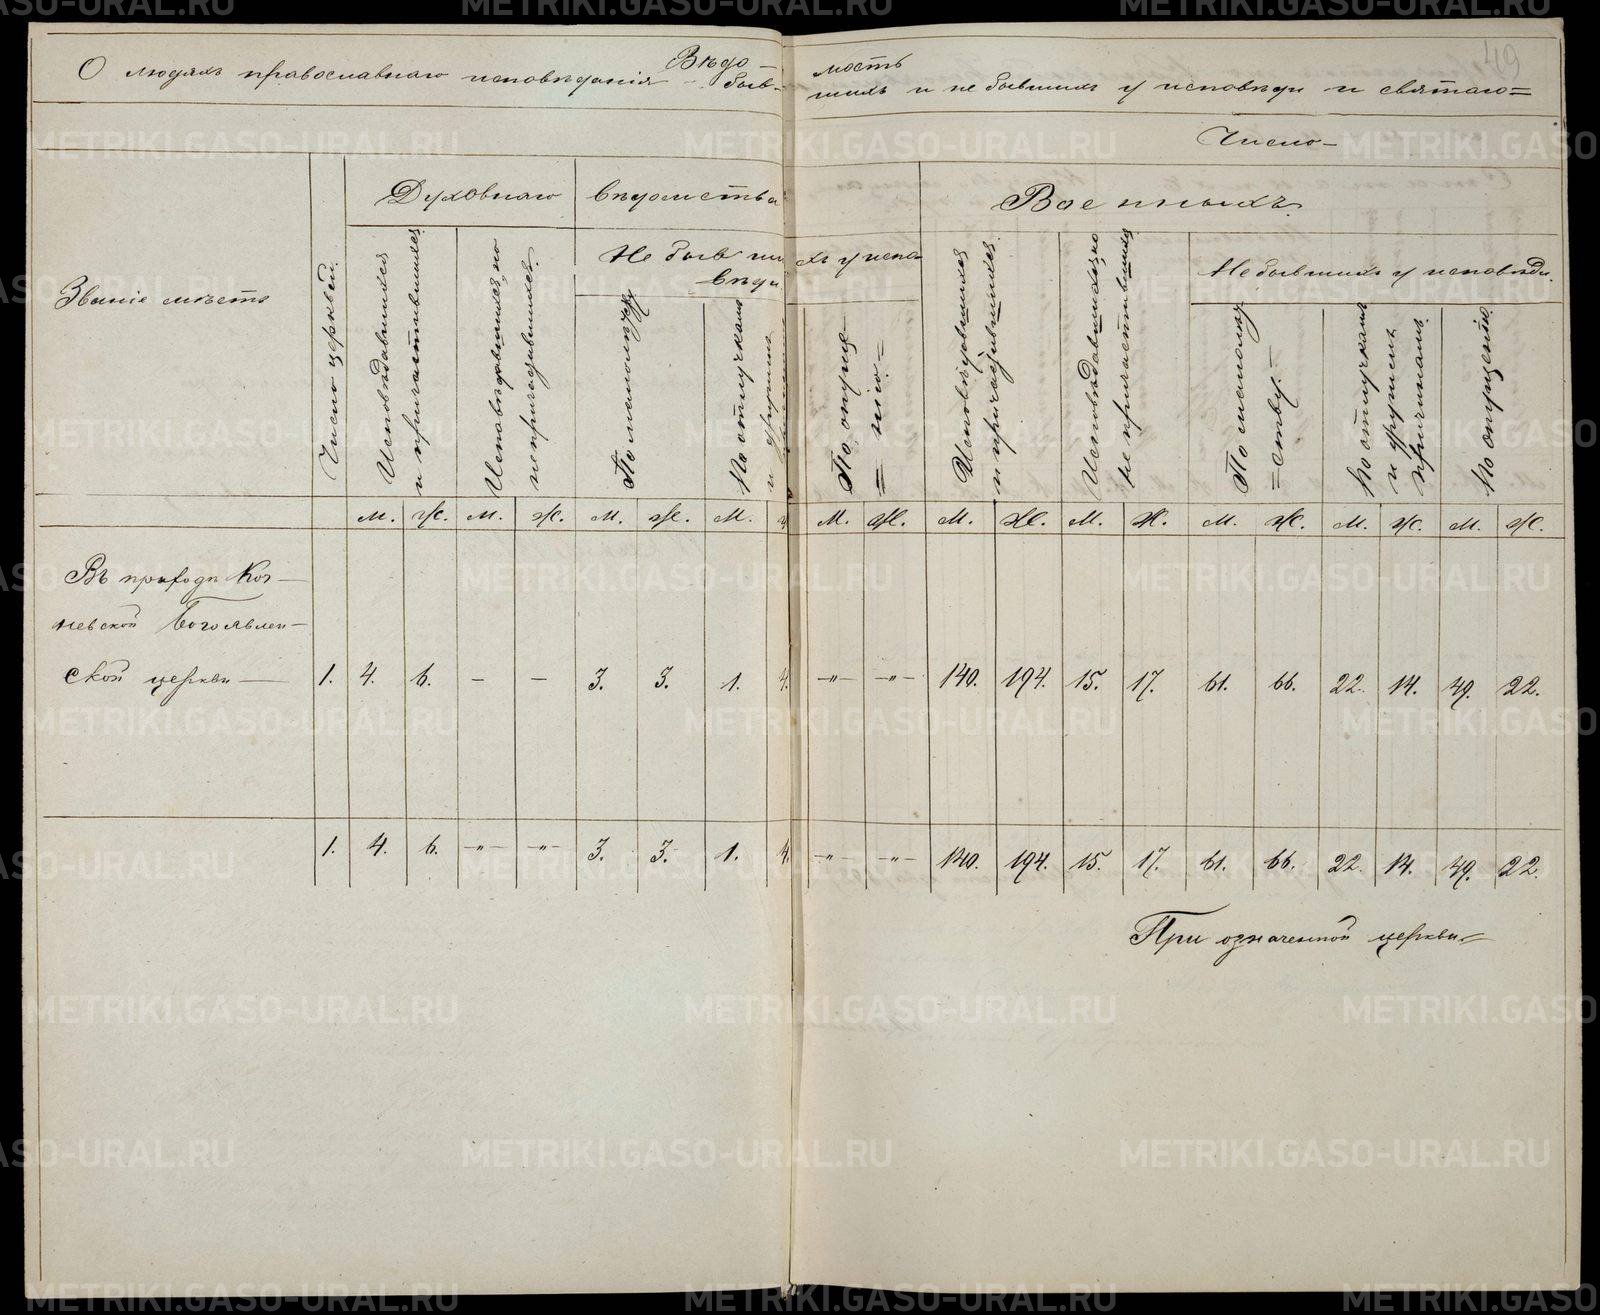 49
Вѣдо-мость
О людяхъ православнаго исповѣданія - бывшихъ и не бывшихъ у исповѣди и святаго=
Число-
Званіе мѣстъ
Число церквей.
Духовнаго вѣдомства
Исповѣдавшихся и причастившихся
Исповѣдавшихся, но не причастившихся.
Не бывшихъ у исповѣди
По малолѣтству
По отлучкамъ и другимъ
По опуще=нію=
Военныхъ.
Исповѣдавшихся и причастившихся
Исповѣдавшихся, но не причастившихся
Не бывшихъ у исповѣди.
По малолѣт=ству.=
По отлучкамъ и другимъ причинамъ.
По опущенію.
м. ж. м. ж. м. ж. м. ж. м. ж. м. ж. м. ж. м. ж. м. ж. м. ж.
Въ приходѣ Коч-
невской Богоявлен-
ской церкви - 1. 4. 6. - - 3. 3. 1. 4. -"- -"- 140. 194. 15. 17. 61. 66. 22. 14. 49. 22.
1. 4. 6. -"- -"- 3. 3. 1. 4. -"- -"- 140. 194. 15. 17. 61. 66. 22. 14. 49. 22.
При означенной церкви=
METRIKI.GASO-URAL.RU